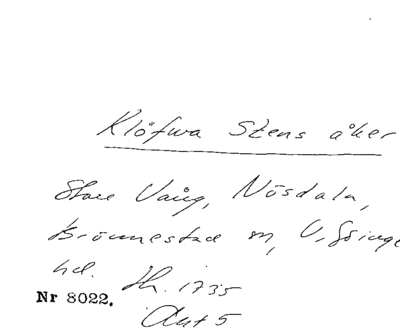 Klöfwa Stens åker
Store Vång, Nösdala,
Brönnestad sn, V. Göinge
hd. Lh. 1735
Nr 8022.
Akt 5